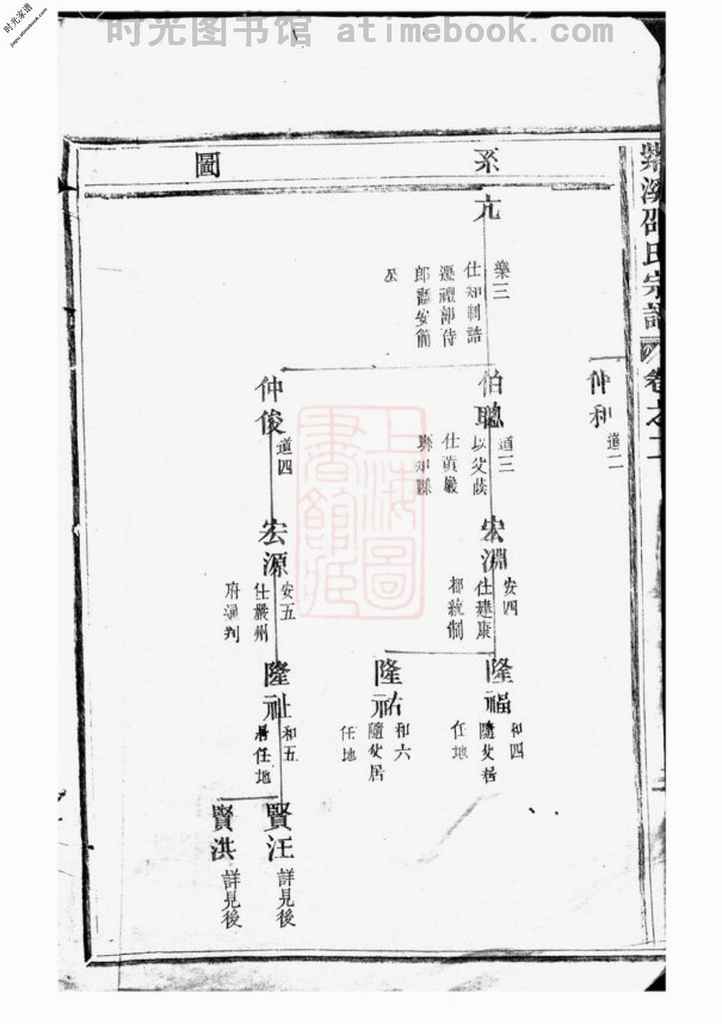 时光图书馆 atimebook.com
时光家谱
jiapu.atimebook.com
紫溪邵氏宗譜
卷之二
系圖
仲和
道二
亢
樂三
仕知制誥
遷禮部侍
郎謚安簡
公
伯聰
道三
以父蔭
仕黃巖
縣知縣
仲俊
道四
宏淵
安四
仕建康
都統制
宏源
安五
仕嚴州
府通判
隆福
和四
隨父居
任地
隆祐
和六
隨父居
任地
隆祉
和五
居任地
賢汪
詳見後
賢洪
詳見後
上海圖書館藏